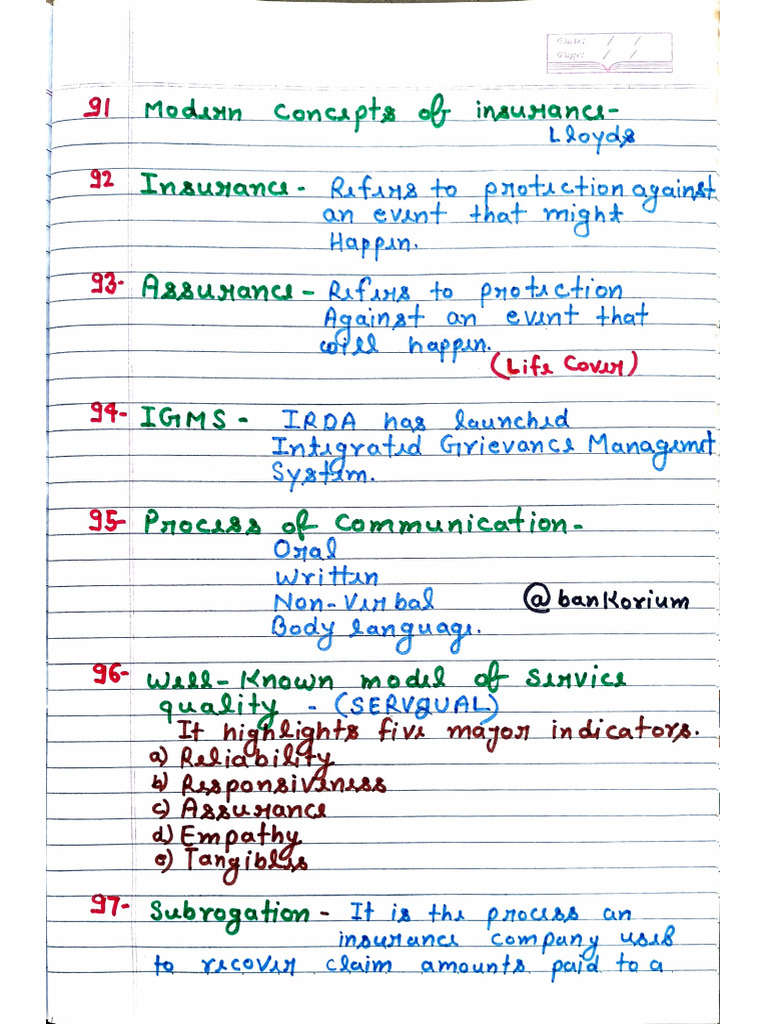 Date: / /
Page: / /
91 Modern concepts of insurance-
Lloyds
92 Insurance - Refers to protection against
an event that might
Happen.
93- Assurance - Refers to protection
Against an event that
will happen.
(Life Cover)
94- IGMS - IRDA has launched
Integrated Grievance Managemet
System.
95- Process of communication-
Oral
Written
Non-Verbal @bankorium
Body language.
96- Well-Known model of service
quality - (SERVQUAL)
It highlights five major indicators.
a) Reliability
b) Responsiveness
c) Assurance
d) Empathy
e) Tangibles
97- Subrogation - It is the process an
insurance company uses
to recover claim amounts paid to a